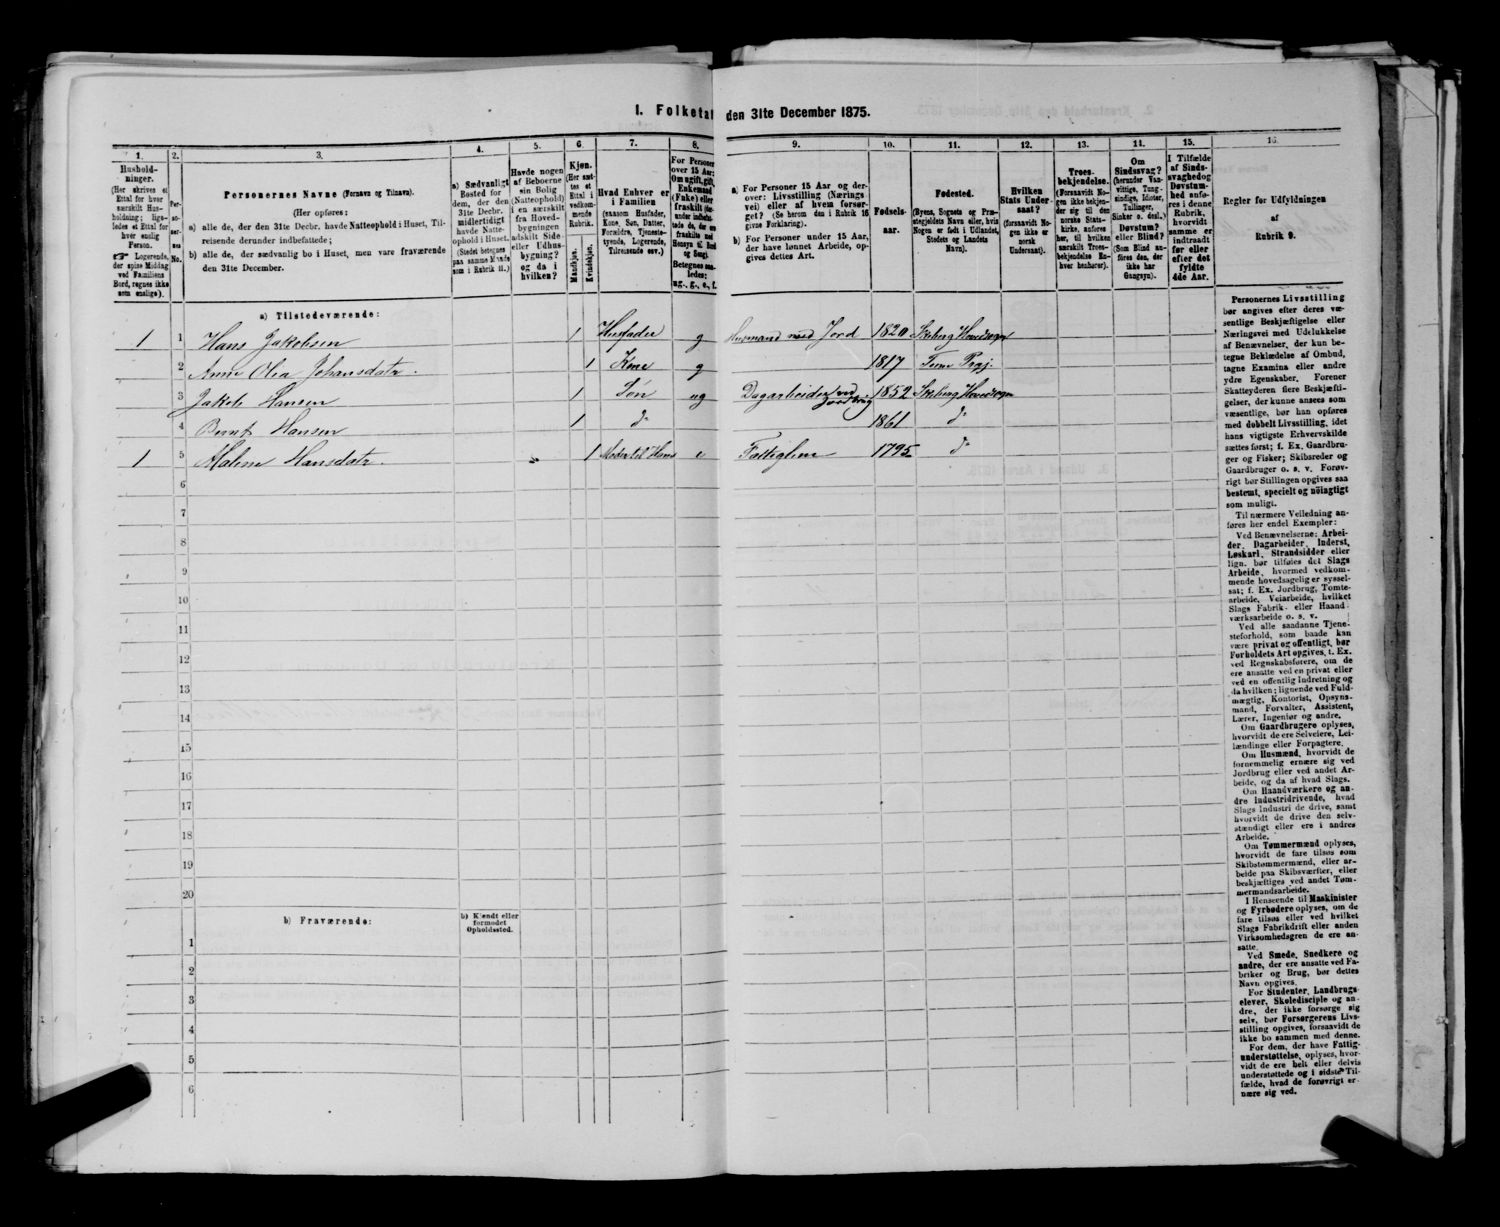 I. Folketæl den 31te December 1875.
1. 2. 3. 4. 5. 6. 7. 8. 9. 10. 11. 12. 13. 11. 15. 16.
Husholdninger.
(Her skrives et
Ettal for hver
særskilt Husholdning;
ligeledes
et Ettal for
hver enslig
Person.
Logerende,
der spise Middag
ved Familiens
Bord, regnes ikke
som enslige).
Personernes No.
Personernes Navne (Fornavn og Tilnavn).
(Her opføres:
a) alle de, der den 31te Decbr. havde Natteophold i Huset, Tilreisende
derunder indbefattede;
b) alle de, der sædvanlig bo i Huset, men vare fraværende
den 31te December.
a) Sædvanligt
Bosted for
dem, der den
31te Decbr.
midlertidigt
havde Natteophold
i Huset.
(Stedet betegnes
paa samme Maade
som i Rubrik 11.)
Havde nogen
af Beboerne
sin Bolig
(Natteophold)
i en særskilt
fra Hovedbygningen
adskilt Side
eller Udhusbygning?
og da i
hvilken?
Kjøn.
(Her sættes et
Ettal i
vedkommende
Rubrik.
Mandkjøn.
Kvindekjøn.
Hvad Enhver er
i Familien
(saasom Husfader,
Kone, Søn, Datter,
Forældre, Tjenestetyende,
Logerende,
Tilreisende osv.)
For Personer
over 15 Aar:
Om ugift, gift,
Enkemand
(Enke) eller
fraskilt
ug., g., e., f.
a) For Personer 15 Aar og derover:
Livsstilling (Næringsvei)
eller af hvem forsørget?
(Se herom den i Rubrik 16
givne Forklaring).
b) For Personer under 15 Aar,
der have lønnet Arbeide, opgives
dettes Art.
Fødselsaar.
Fødested.
(Byens, Sognets og Præstegjeldets
Navn eller, hvis
Nogen er født i Udlandet,
Stedets og Landets
Navn).
Hvilken
Stats Undersaat?
(forsaavidt Nogen
ikke er
norsk
Undersaat).
Troesbekjendelse.
(Forsaavidt Nogen
ikke bekjender
sig til den
norske Statskirke,
anføres
her, til hvilken
særskilt Troesbekjendelse
Enhver
henhører).
Om
Sindssvag?
(herunder Vanvittige,
Tungsindige,
Idioter,
Tullinger,
Sinker o. desl.)
Døvstum?
eller Blind?
(Som Blind anføres
den, der
ikke har
Gangsyn).
I Tilfælde
af Sindssvaghed
og
Døvstumhed
anføres
i denne
Rubrik,
hvorvidt
samme er
indtraadt
før eller
efter det
fyldte
4de Aar.
Regler for Udfyldningen
af
Rubrik 9.
a) Tilstedeværende:
1 1 Hans Jakobsen 1 Husfader g Husmand med Jord 1820 Skiberg Hovedsogn
2 Anne Olea Johansdatr. 1 Kone g 1817
3 Jakob Hansen 1 Søn ug Dagarbeider ved Jordbrug 1852 Skiberg Hovedsogn
4 Bernt Hansen 1 do 1861 do
1 5 Malene Hansdatr. 1 Moder til Hans e Fattiglem 1795 do
6
7
8
9
10
11
12
13
14
15
16
17
18
19
20
b) Fraværende:
b) Kjendt eller
formodet
Opholdssted.
1
2
3
4
5
6
Personernes Livsstilling
bør angives efter deres væsentlige
Beskjæftigelse eller
Næringsvei med Udelukkelse
af Benævnelser, der kun betegne
Beklædelse af Ombud,
tagne Examina eller andre
ydre Egenskaber. Forener
Skatteyderen flere Beskjæftigelser,
der kunne ansees som
væsentlige, bør han opføres
med dobbelt Livsstilling, idet
hans vigtigste Erhvervskilde
sættes først; f. Ex. Gaardbruger
og Fisker; Skibsreder og
Gaardbruger o. s. v. Forøvrigt
bør Stillingen opgives saa
bestemt, specielt og nöiagtigt
som muligt.
Til nærmere Veiledning anføres
her endel Exempler:
Ved Benævnelserne: Arbeider,
Dagarbeider, Inderst,
Løskarl, Strandsidder eller
lign. bør tilføies det Slags
Arbeide, hvormed vedkommende
hovedsagelig er sysselsat;
f. Ex. Jordbrug, Tomtearbeide,
Veiarbeide, hvilket
Slags Fabrik- eller Haandværksarbeide
o. s. v.
Ved alle saadanne Tjenesteforhold,
som baade kan
være privat og offentligt, bør
Forholdets Art opgives, f. Ex.
ved Regnskabsførere, om de
ere ansatte ved en privat eller
ved en offentlig Indretning og
da hvilken; lignende ved Fuldmægtig,
Kontorist, Opsynsmand,
Forvalter, Assistent,
Lærer, Ingeniør og andre.
Om Gaardbrugere oplyses,
hvorvidt de ere Selveiere, Leilændinge
eller Forpagtere.
Om Husmænd, hvorvidt de
fornemmelig ernære sig ved
Jordbrug eller ved andet Arbeide,
og da af hvad Slags.
Om Haandværkere og andre
Industridrivende, hvad
Slags Industri de drive, samt
hvorvidt de drive den selvstændigt
eller ere i andres
Arbeide.
Om Tømmermænd oplyses,
hvorvidt de fare tilsøs som
Skibstømmermænd, eller arbeide
paa Skibsværfter, eller
beskjæftiges ved andet Tømmermandsarbeide.
I Henseende til Maskinister
og Fyrbødere oplyses, om de
fare tilsøs eller ved hvilket
Slags Fabrikdrift eller anden
Virksomhedsgren de ere ansatte.
Ved Smede, Snedkere og
andre, der ere ansatte ved Fabriker
og Brug, bør dettes
Navn opgives.
For Studenter, Landbrugselever,
Skoledisciple og andre,
der ikke forsørge sig
selv, bør Forsørgerens Livsstilling
opgives, forsaavidt de
ikke bo sammen med denne.
For dem, der have Fattigunderstøttelse,
oplyses, hvorvidt
de ere helt eller delvis
understøttede og i sidste Tilfælde,
hvad de forøvrigt ernære
sig ved.